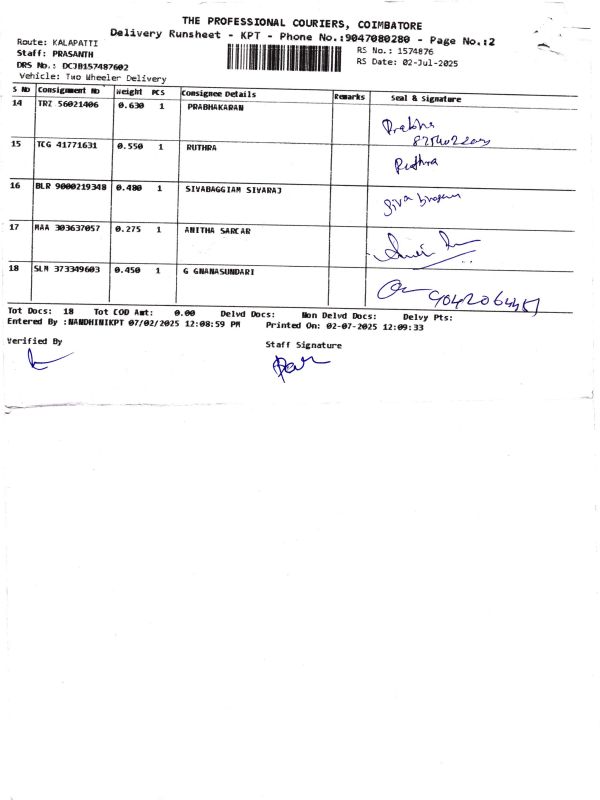 THE PROFESSIONAL COURIERS, COIMBATORE
Delivery Runsheet - KPT - Phone No.:9047080280 - Page No.:2
Route: KALAPATTI
Staff: PRASANTH
DRS No.: DCJB157487602
Vehicle: Two Wheeler Delivery
RS No.: 1574876
RS Date: 02-Jul-2025
S No Consignment No Weight PCS Consignee Details Remarks Seal & Signature
14 TRZ 56021406 0.630 1 PRABHAKARAN
Prabhu
15 TCG 41771631 0.550 1 RUTHRA
Ruthra
16 BLR 9000219348 0.480 1 SIVABAGGIAM SIVARAJ
17 MAA 303637057 0.275 1 ANITHA SARCAR
18 SLM 373349603 0.450 1 G GNANASUNDARI
Tot Docs: 18 Tot COD Amt: 0.00 Delvd Docs: Non Delvd Docs: Delvy Pts:
Entered By :NANDHINIKPT 07/02/2025 12:08:59 PM Printed On: 02-07-2025 12:09:33
Verified By
Staff Signature